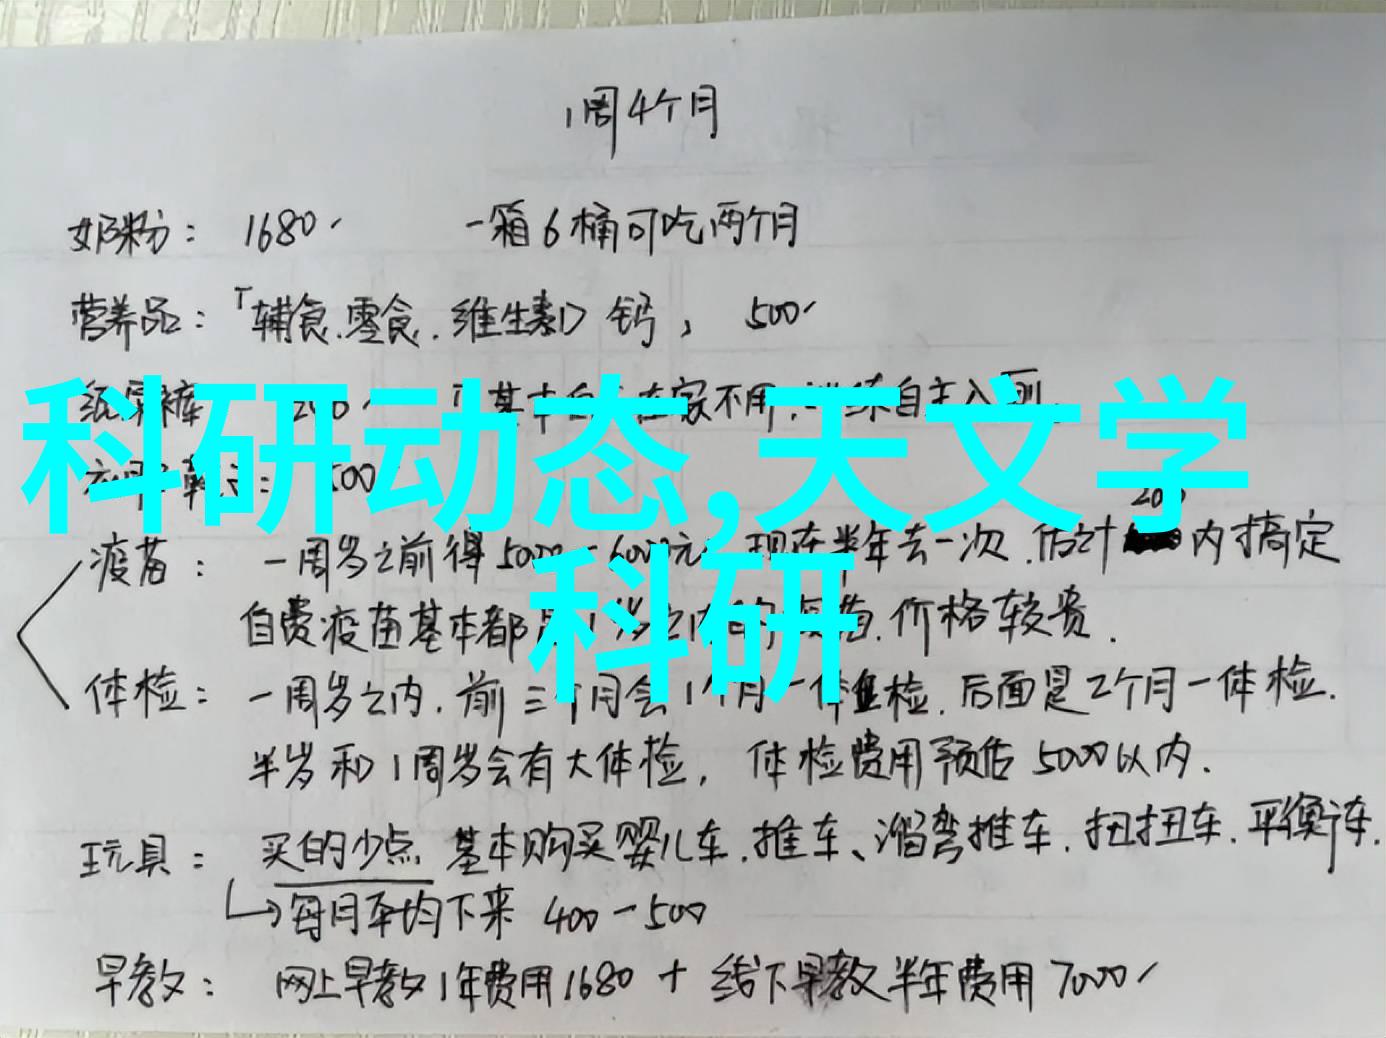 1周4个月
奶粉： 1680 一箱6桶可吃两个月
营养品：「辅食.零食.维生素D 钙， 500
纸尿裤 200 基本白 在家不用, 练自主入厕.
科研动态,天文学
500
200
疫苗： 一周岁之前得5000-6000元 现在半年去一次.估计 内搞定
自费疫苗基本都 1岁之内的疫苗.价格较贵.
科研
体检： 一周岁之内.前三个月会1个月一体检.后面是2个月一体检.
半岁和1周岁会有大体检， 体检费用预估5000以内.
玩具： 买的少点 基本购买婴儿车.推车、溜弯推车.扭扭车.平衡车.
→每月平均下来 400-500
早教： 网上早教1年费用1680 + 线下早教半年费用7000